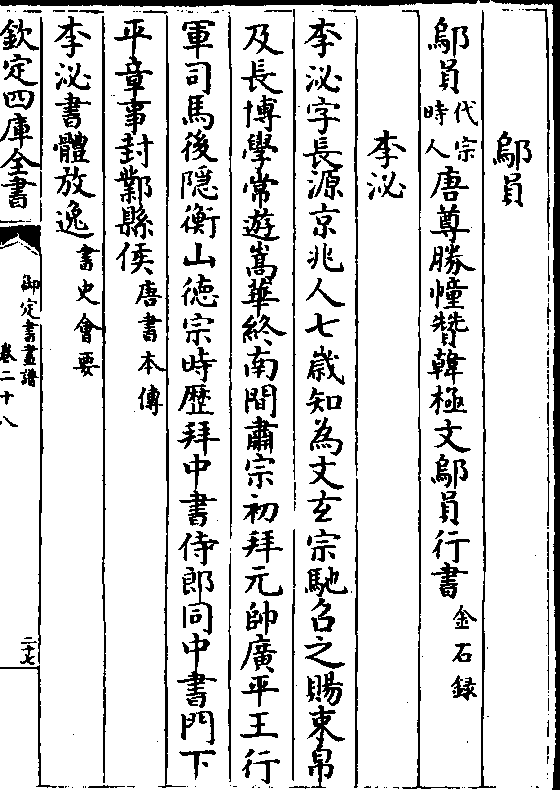 鄔員
鄔員代宗時人唐尊勝幢賛韓極文鄔員行書金石録
李泌
李泌字長源京兆人七歳知為文玄宗馳召之賜束帛
及長博學常遊嵩華終南間肅宗初拜元帥廣平王行
軍司馬後隠衡山徳宗時歴拜中書侍郎同中書門下
平章事封鄴縣侯唐書本傳
李泌書體放逸書史會要
欽定四庫全書
御定書畫譜
卷二十八
二十七